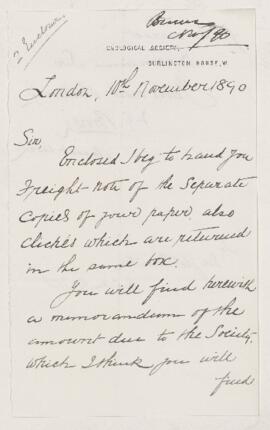 2 Enclosures
Nov/90
GEOLOGICAL SOCIETY,
BURLINGTON HOUSE, W
London, 10th November 1890
Sir,
Enclosed I beg to hand you
Freight-note of the Separate
Copies of your paper, also
clichés which are returned
in the same box.
You will find herewith
a memorandum of the
amount due to the Society,
which I think you will
find